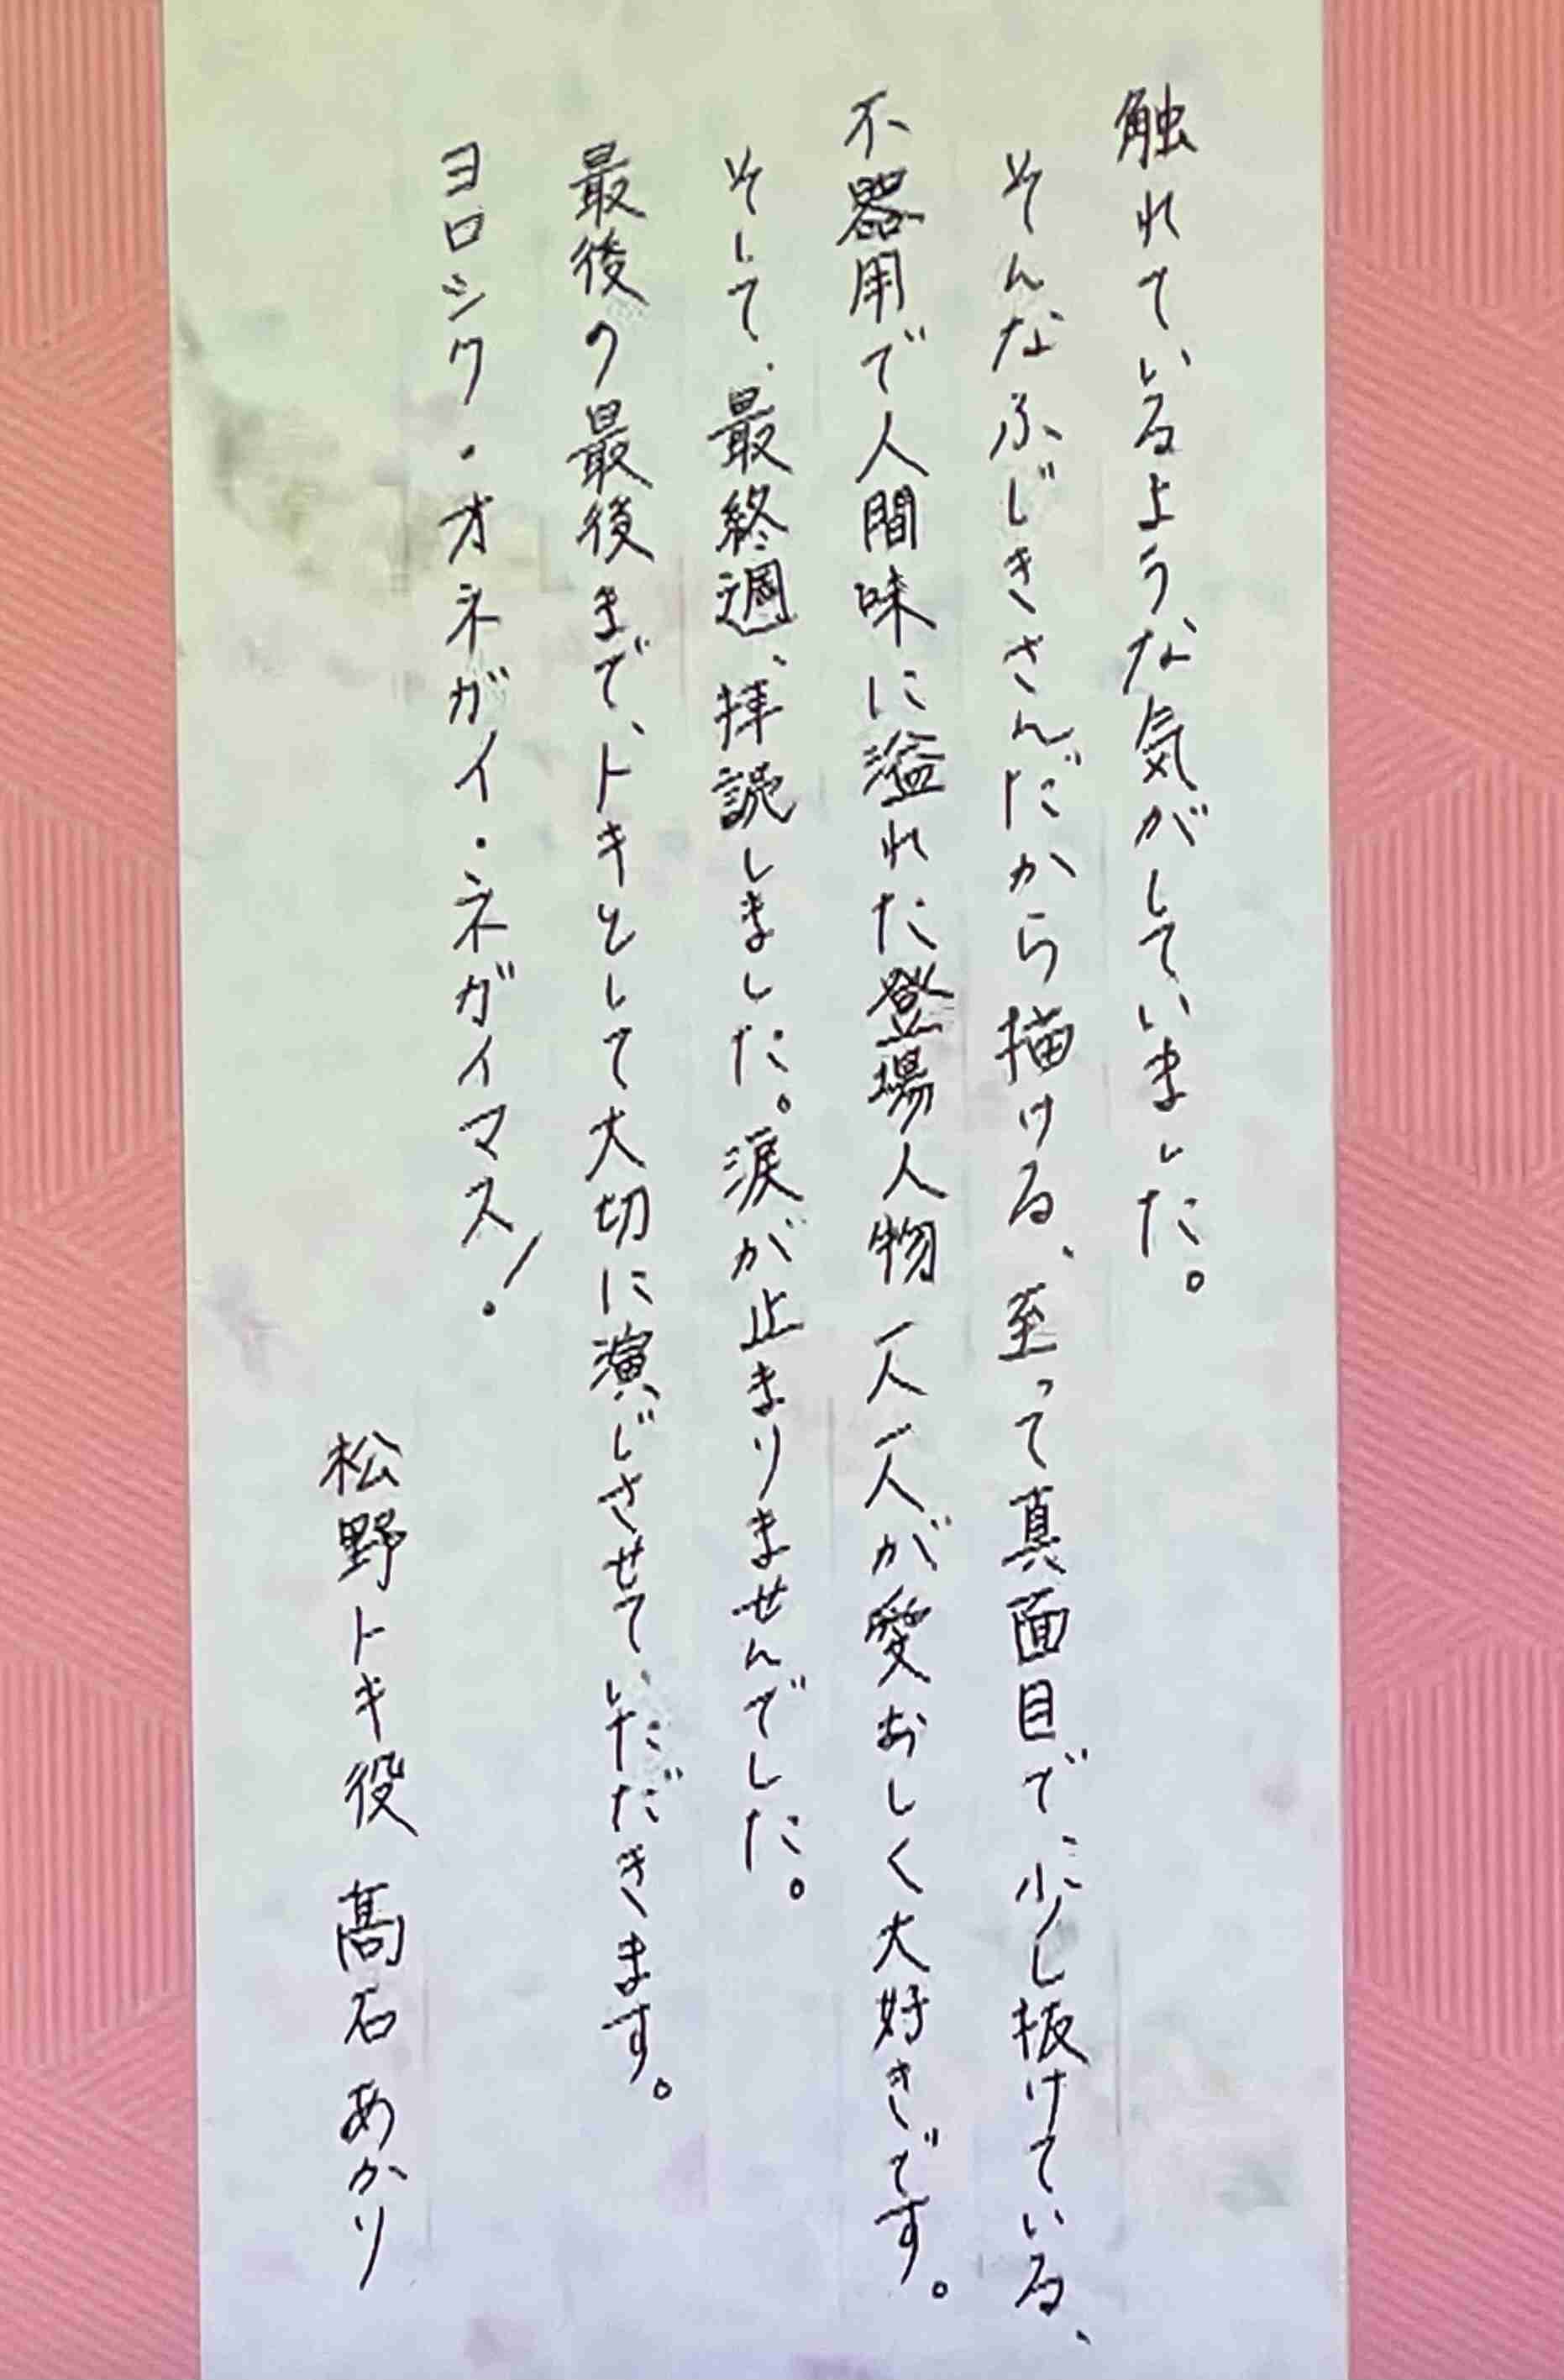 触れているような気がしていました。
そんなふじきさんだから描ける、至って真面目で少し抜けている、
不器用で人間味に溢れた登場人物一人一人が愛おしく大好きです。
そして、最終週、拝読しました。涙が止まりませんでした。
最後の最後まで、トキとして大切に演じさせていただきます。
ヨロシク・オネガイ・ネガイマス!
松野トキ役 髙石あかり